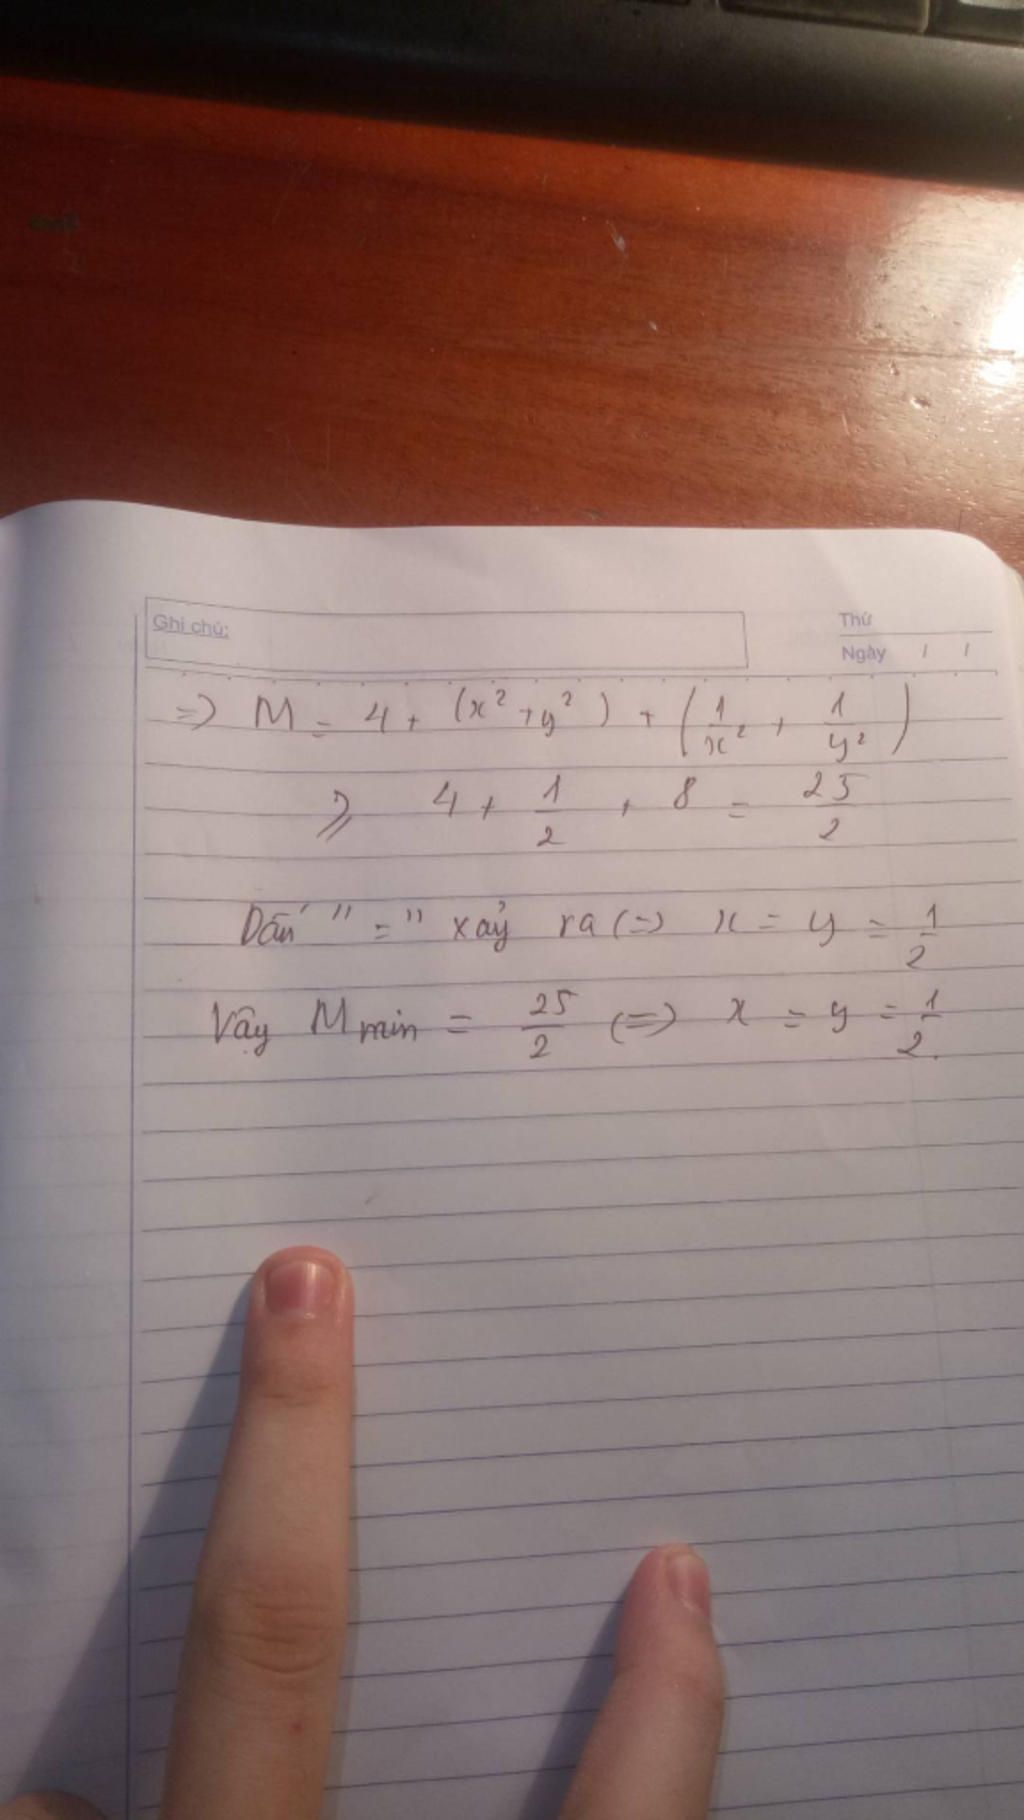 Ghi chú:
Thứ
Ngày / /
=> M = 4 + (x² + y²) + (1/x² + 1/y²)
≥ 4 + 1/2 + 8 = 25/2
Dấu "=" xảy ra <=> x = y = 1/2
Vậy M min = 25/2 <=> x = y = 1/2.